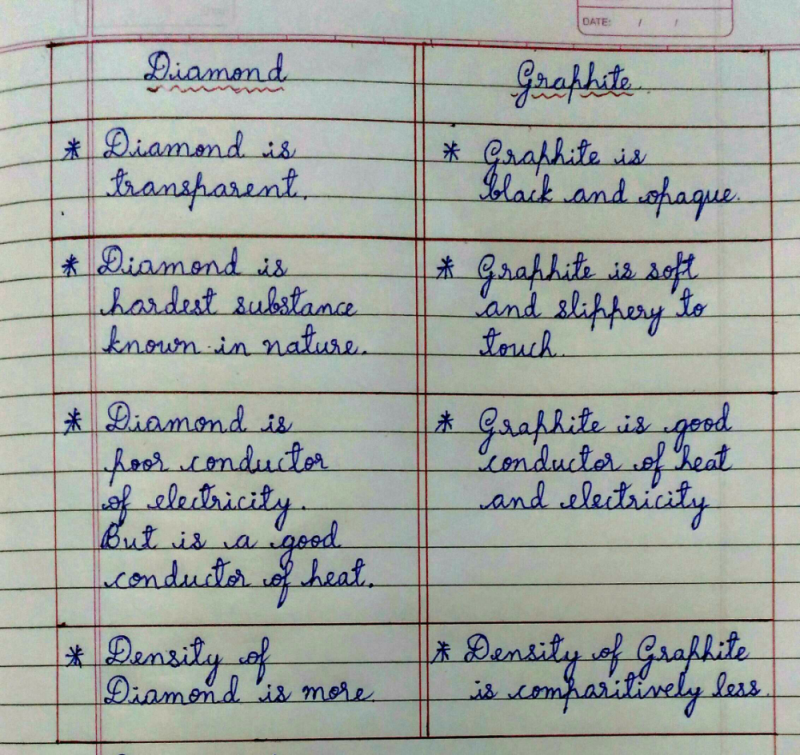 DATE: / /
Diamond
Graphite
* Diamond is
transparent.
* Graphite is
black and opaque.
* Diamond is
hardest substance
known in nature.
* Graphite is soft
and slippery to
touch.
* Diamond is
poor conductor
of electricity.
But is a good
conductor of heat.
* Graphite is good
conductor of heat
and electricity
* Density of
Diamond is more
* Density of Graphite
is comparitively less.